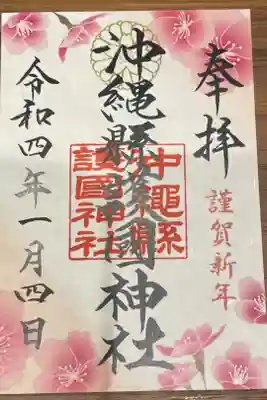 奉拝
謹賀新年
沖縄縣護國神社
沖繩縣護國神社
令和四年一月四日